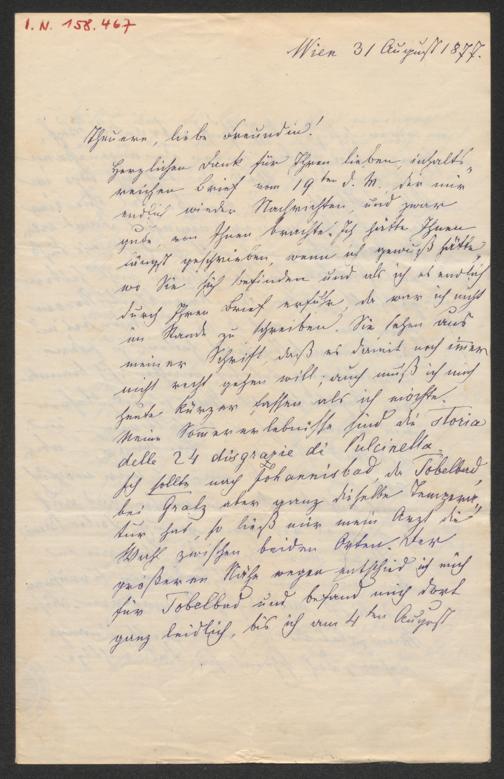 I.N. 158.467
Wien 31 August 1877.
Theuere, liebe Freundin!
Herzlichen Dank für Ihren lieben, inhalts-
reichen Brief vom 19ten d. M., der mir
endlich wieder Nachrichten, und zwar
gute, von Ihnen brachte. Ich hätte Ihnen
längst geschrieben, wenn ich gewußt hätte,
wo Sie sich befinden und als ich es endlich
durch Ihren Brief erfuhr, da war ich nicht
im Stande zu schreiben. Sie sehen aus
meiner Schrift, daß es damit noch immer
nicht recht gehen will; auch muß ich mich
heute kürzer fassen als ich möchte.
Meine Sommererlebnisse sind die Storia
delle 24 disgrazie di Pulcinella.
Ich sollte nach Johannisbad, da Tobelbad
bei Gratz aber ganz dieselbe Tempera-
tur hat, so ließ mir mein Arzt die
Wahl zwischen beiden Orten. Der
größeren Nähe wegen entschied ich mich
für Tobelbad und befand mich dort
ganz leidlich, bis ich am 4ten August